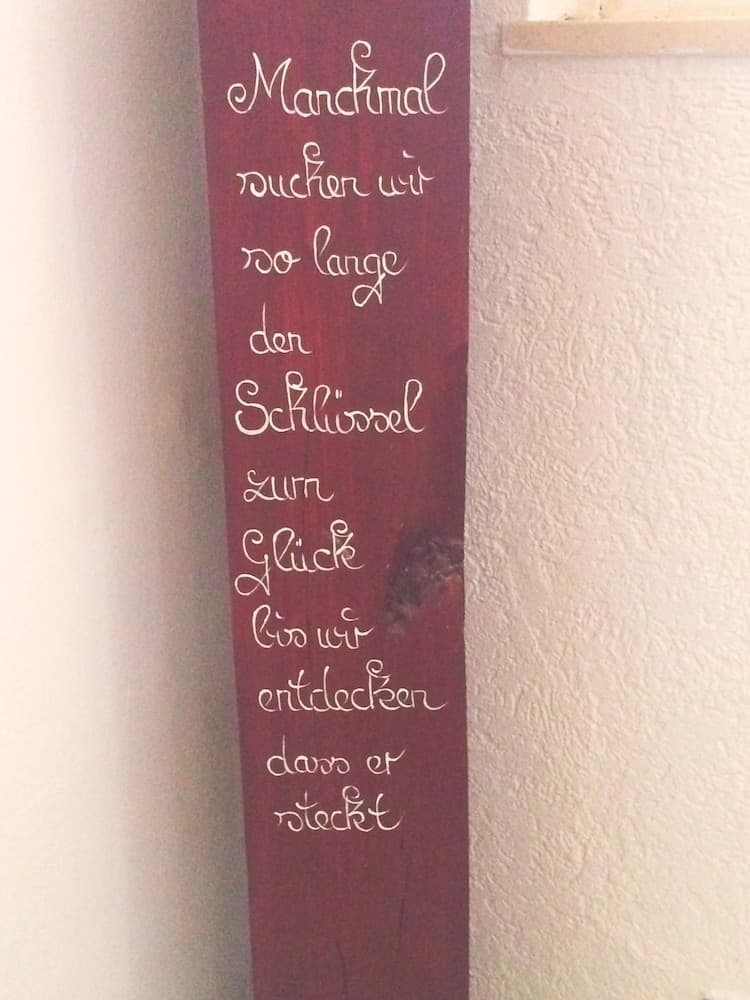 Manchmal
suchen wir
so lange
den
Schlüssel
zum
Glück
bis wir
entdecken
dass er
steckt